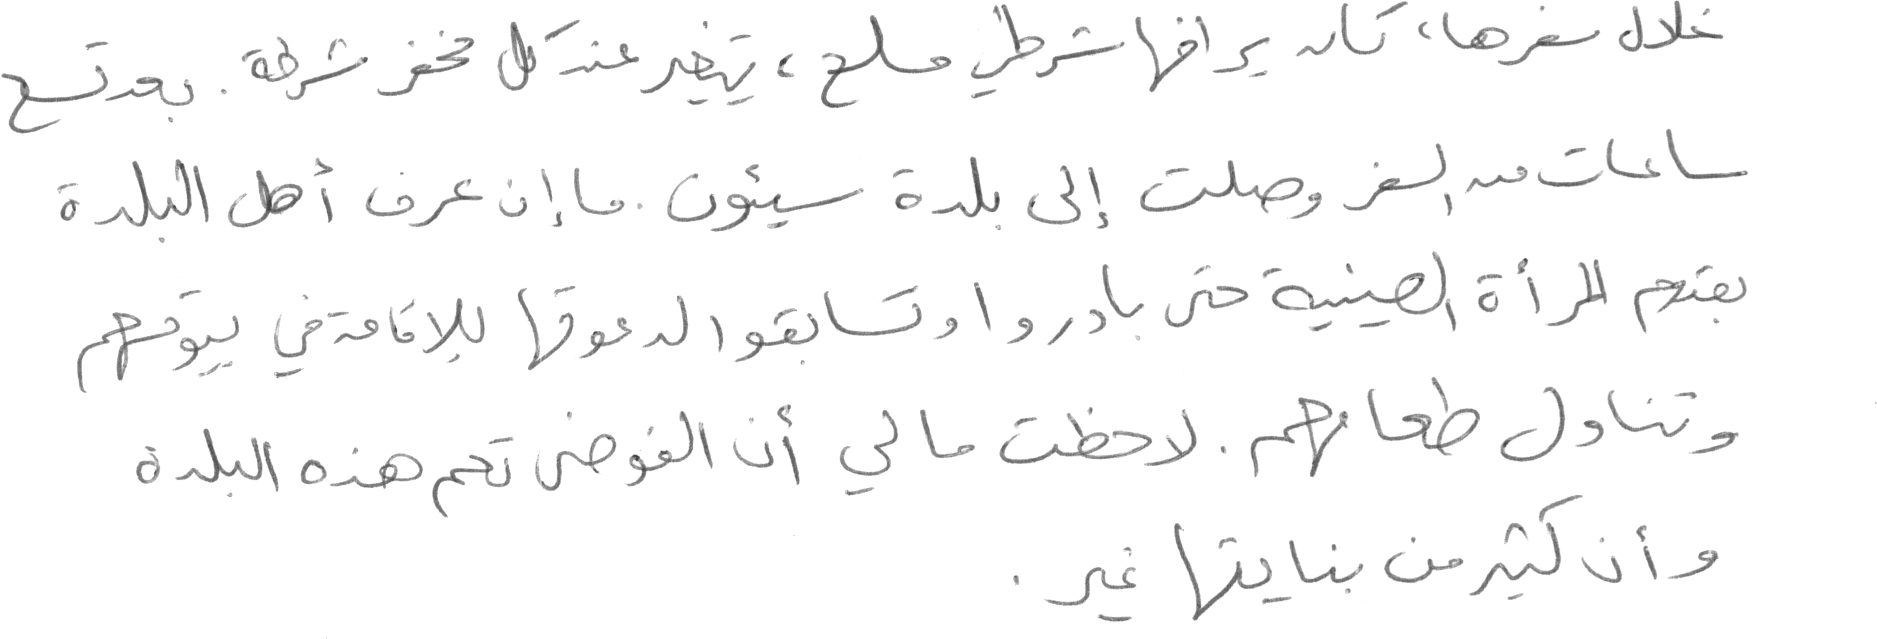 خلال سفرها، كان يرافقها شرطي مسلح، يتغير عند كل مخفر شرطة. بعد تسع
ساعات من السفر وصلت إلى بلدة سيئون. ما إن عرف أهل البلدة
بقدوم المرأة الصينية حتى بادروا وتسابقوا لدعوتها للإقامة في بيوتهم
وتناول طعامهم. لاحظت مالي أن الفوضى تعم هذه البلدة
وأن كثير من بنايتها غير .